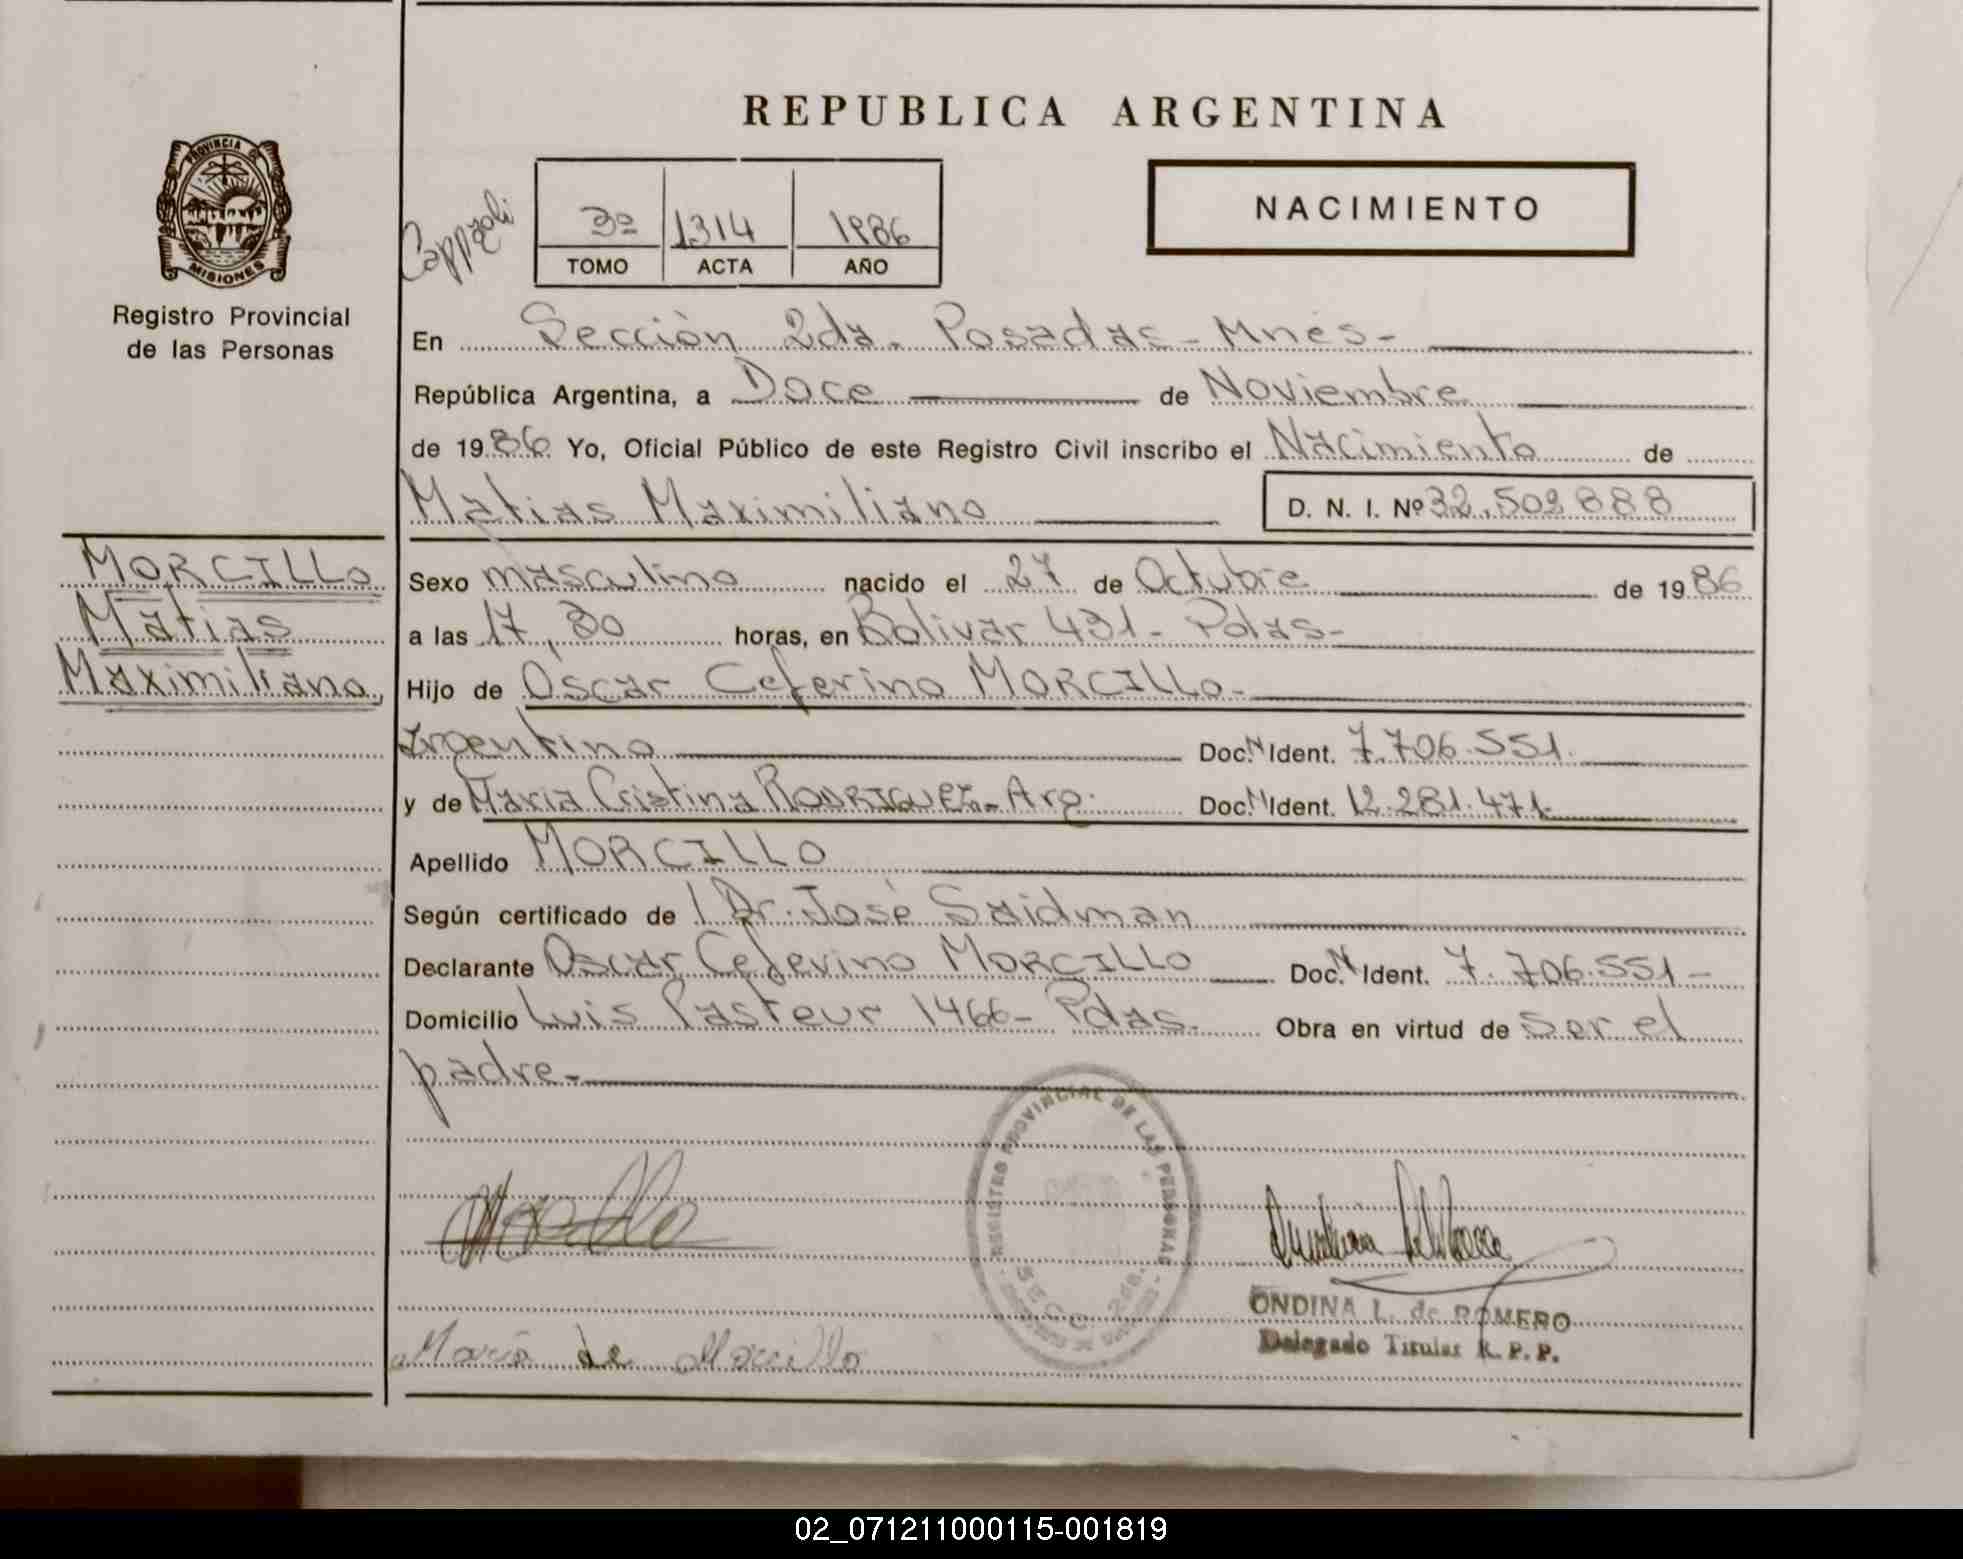 REPUBLICA ARGENTINA
PROVINCIA DE
MISIONES
Registro Provincial
de las Personas
3º 1314 1986
TOMO ACTA AÑO
NACIMIENTO
En Sección 2da. Posadas - Mnes -
República Argentina, a Doce de Noviembre
de 1986 Yo, Oficial Público de este Registro Civil inscribo el Nacimiento de
Matias Maximiliano D. N. I. Nº 32.502.888
MORCILLO
Matias
Maximiliano,
Sexo masculino nacido el 27 de Octubre de 1986
a las 17,30 horas, en Bolivar 431 - Pdas -
Hijo de Oscar Ceferino MORCILLO -
Argentino Doc. N Ident. 7.706.551.
y de Maria Cristina RODRIGUEZ - Arg. Doc. N Ident. 12.281.471.
Apellido MORCILLO
Según certificado de l Dr. José Saidman
Declarante Oscar Ceferino MORCILLO Doc. N Ident. 7.706.551 -
Domicilio Luis Pasteur 1466 - Pdas. Obra en virtud de ser el
padre -
REGISTRO PROVINCIAL DE LAS PERSONAS
SECC. 2da.
ONDINA L. de ROMERO
Delegado Titular R. P. P.
Maria de Morcillo
02_071211000115-001819